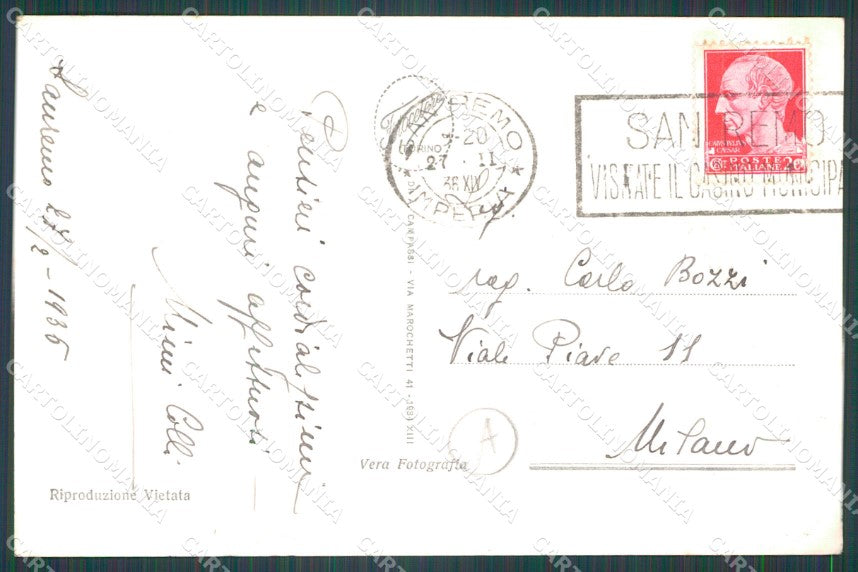 Sanremo 27/2-1936
Pensieri cordialissimi
e auguri affettuosi
Mimì Colli
SAN REMO
IMPERIA
27 . II
36 XIV
SAN REMO
VISITATE IL CASINO MUNICIPA
CAIVS IVLIVS
CAESAR
POSTE
ITALIANE
20
TORINO
CAMPASSI - VIA MAROCHETTI 41 - 1931 XIII
rag. Carlo Bozzi
Viale Piave 11
Milano
A
Vera Fotografia
Riproduzione Vietata
CARTOLINOMANIA